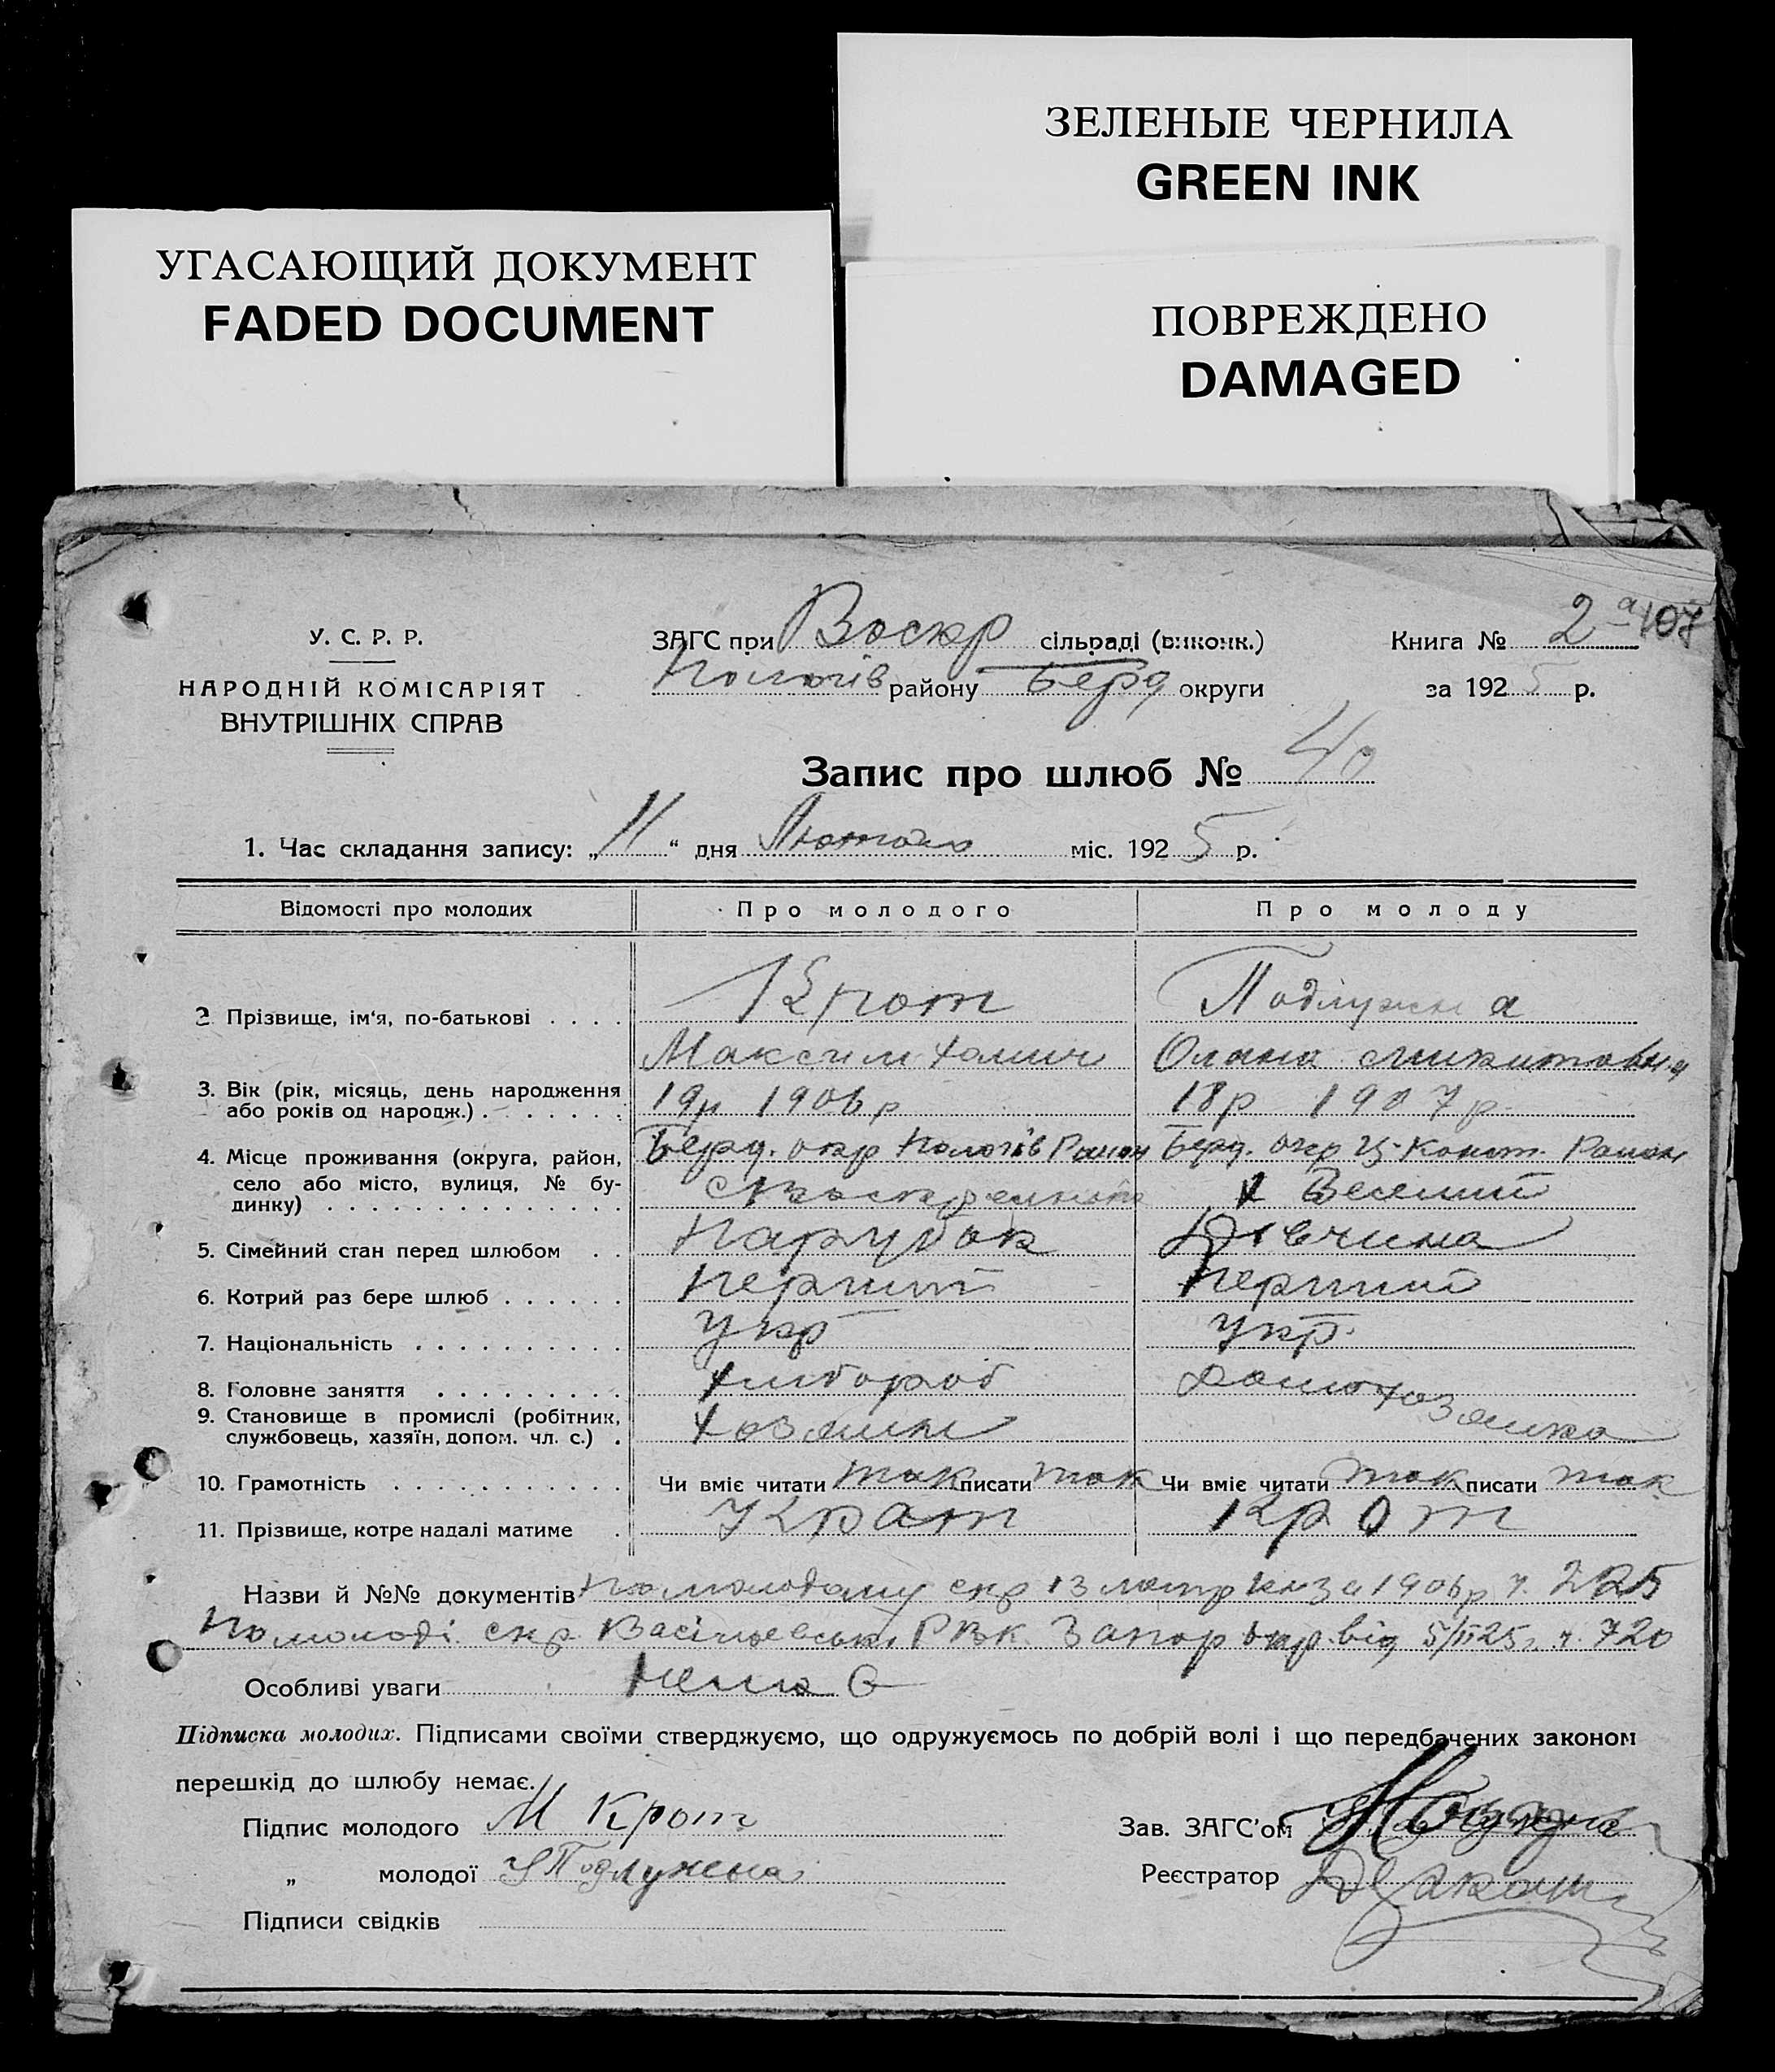 ЗЕЛЕНЫЕ ЧЕРНИЛА
GREEN INK
УГАСАЮЩИЙ ДОКУМЕНТ
FADED DOCUMENT
ПОВРЕЖДЕНО
DAMAGED
У. С. Р. Р.
НАРОДНІЙ КОМІСАРІЯТ
ВНУТРІШНІХ СПРАВ
ЗАГС при Воскр сільраді (виконк.)
Пологів району Берд округи
Книга № 2а 107
за 1925 р.
Запис про шлюб № 40
1. Час складання запису: „11“ дня Лютого міс. 1925 р.
Відомості про молодих Про молодого Про молоду
2 Прізвище, ім‘я, по-батькові . . . . Крот Подлужна
Максим Хомич Олена Микитовна
3. Вік (рік, місяць, день народження 19р 1906 р 18р 1907 р
або років од народж.) . . . . . . .
4. Місце проживання (округа, район, Берд. окр Пологів Район Берд. окр Ц-Конст. Район
село або місто, вулиця, № бу- х Веселий
динку) . . . . . . . . . . . . . . .
5. Сімейний стан перед шлюбом . . Парубок Дівчина
6. Котрий раз бере шлюб . . . . . . Перший Перший
7. Національність . . . . . . . . . . Укр Укр.
8. Головне заняття . . . . . . . . . Хлібороб Домохозяика
9. Становище в промислі (робітник, Хозяин
службовець, хазяїн, допом. чл. с.) .
10. Грамотність . . . . . . . . . . . Чи вміє читати так писати так Чи вміє читати так писати так
11. Прізвище, котре надалі матиме . Крот Крот
Назви й №№ документів По молодому скр із метр книз 1906 р ч. 225
По молоді скр. Васільевськ РВК Запор окр. від 5/ІІ 25 ч. 720
Особливі уваги Нема є
Підписка молодих. Підписами своїми стверджуємо, що одружуємось по добрій волі і що передбачених законом
перешкід до шлюбу немає.
Підпис молодого М Крот Зав. ЗАГС’ом
„ молодої Подлужена Реєстратор
Підписи свідків